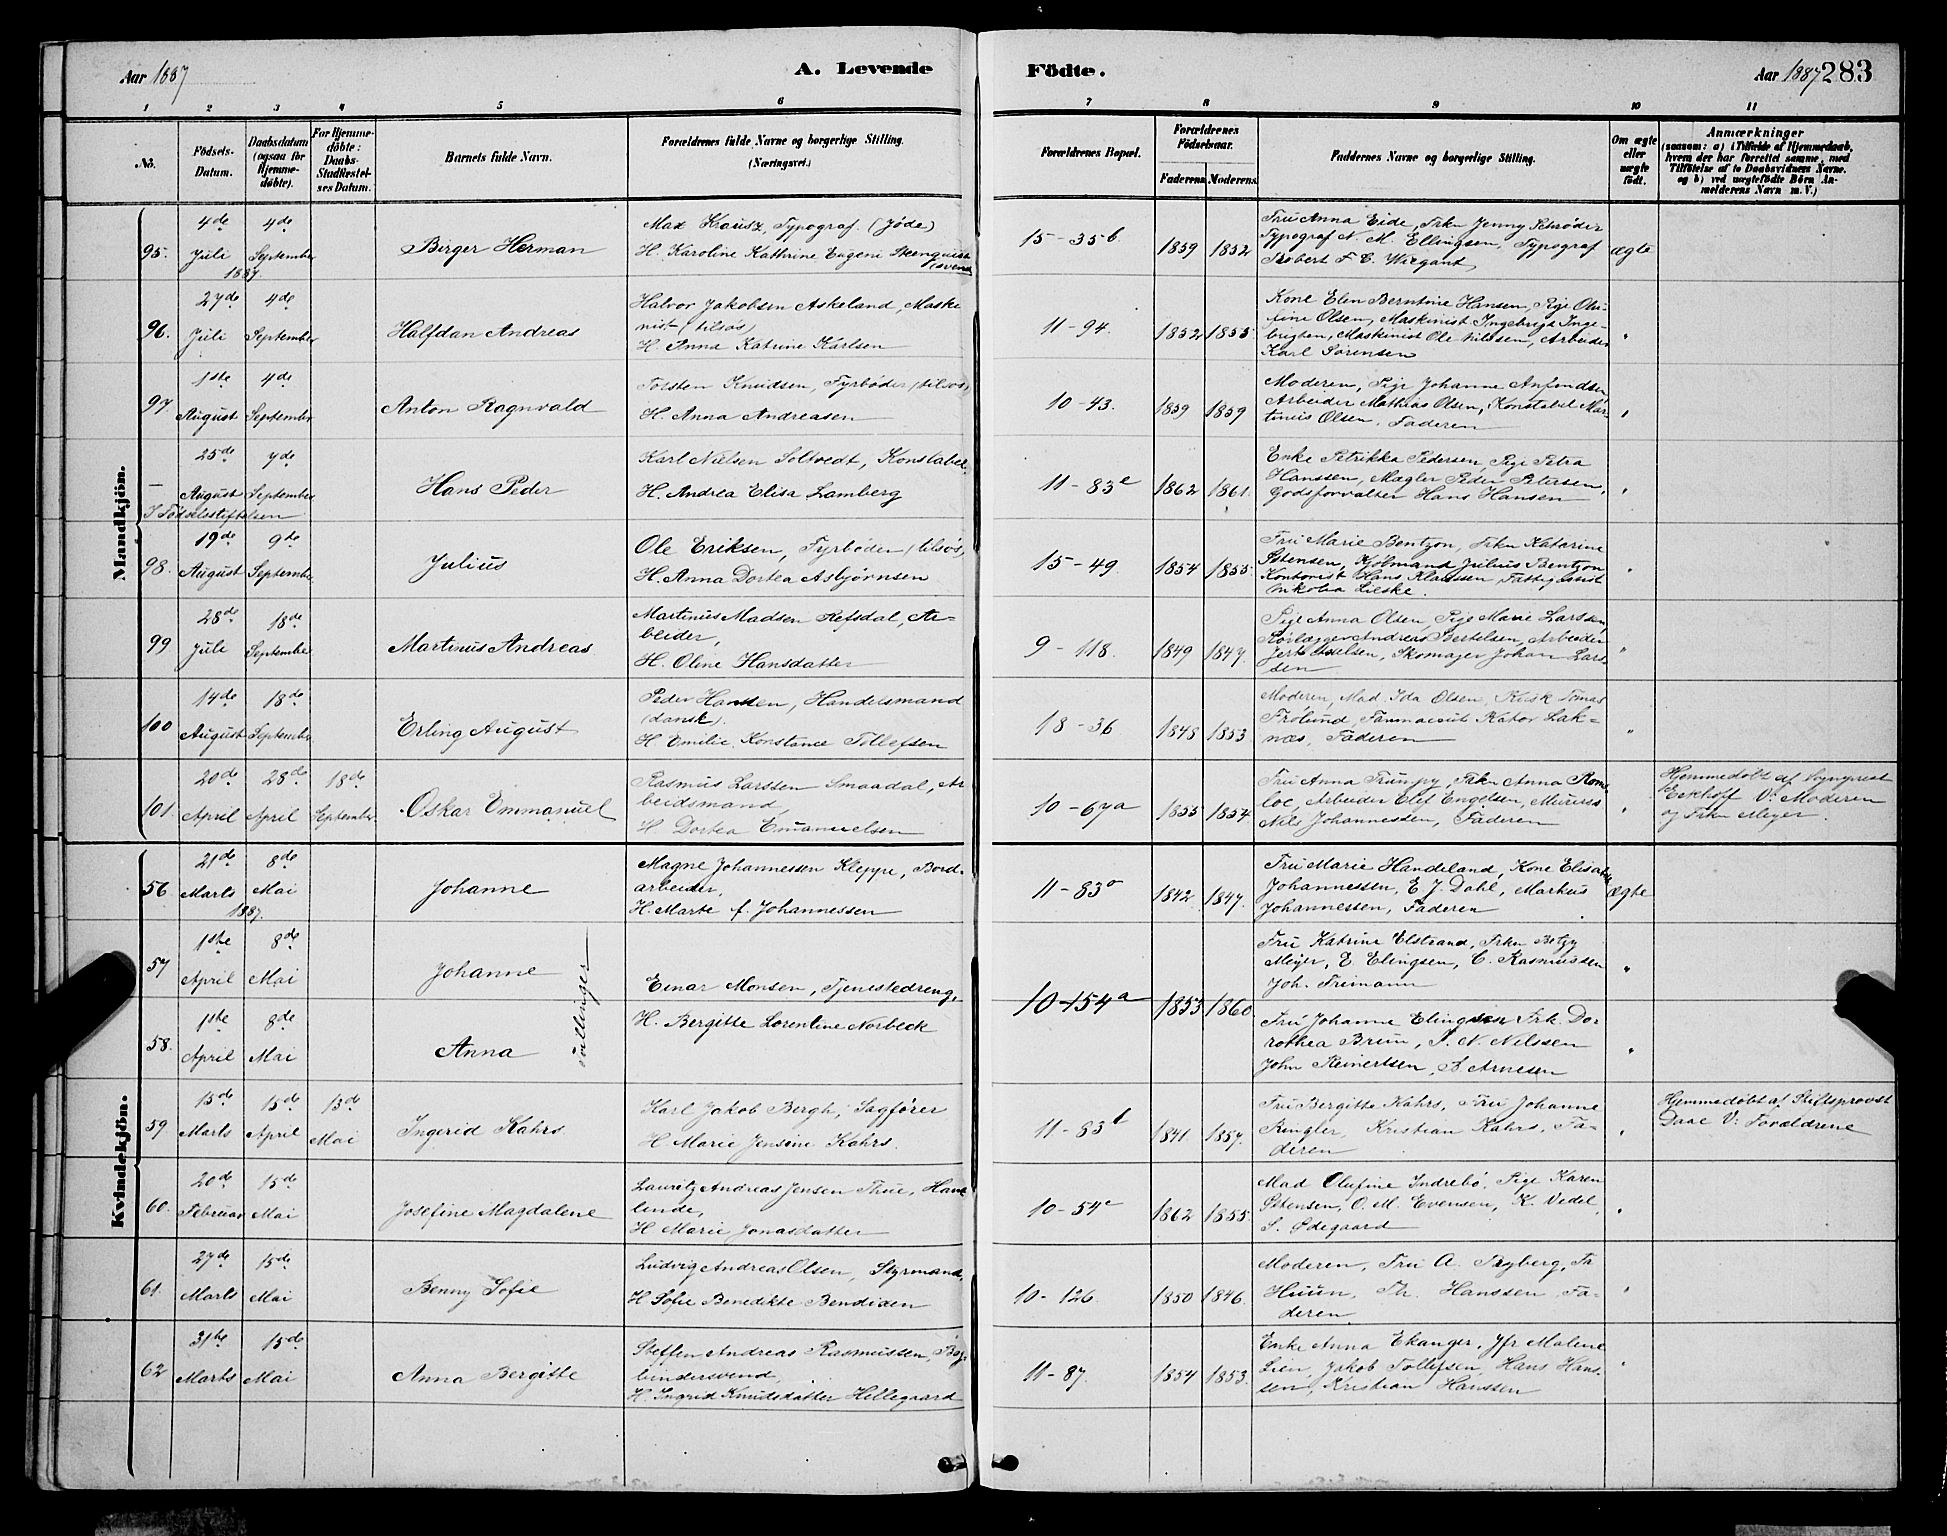 Aar 1887
A. Levende
Födte.
Aar 1887 283
1 2 3 4 5 6 7 8 9 10 11
No.
Födsels-
Datum.
Daabsdatum
(ogsaa for
Hjemme-
döbte).
For Hjemme-
döbte:
Daabs-
Stadfæstel-
ses Datum.
Barnets fulde Navn.
Forældrenes fulde Navne og borgerlige Stilling.
(Næringsvei.)
Forældrenes Bopæl.
Forældrenes
Födselsaar.
Faderens. Moderens.
Faddernes Navne og borgerlige Stilling.
Om ægte
eller
uægte
født.
Anmærkninger
(saasom: a) i Tilfælde af Hjemmedaab,
hvem der har forrettet samme, med
Tilföielse af to Daabsvidners Navne.
og b) ved uægtefödte Börn An-
melderens Navn m. V.)
Mandkjön.
95. 4de Juli 1887 4de September
Birger Herman
Max Krausz, Typograf. (Jøde)
H. Karoline Kathrine Eugeni Steenquist
(svensk
15-35b 1859 1852
Fru Anna Eide, Frkn Jenny Schrøder
Typograf N. M. Ellingsen, Typograf
Robert F. C. Wiegant
ægte
96. 27de Juli 4de September
Halfdan Andreas
Halvor Jakobsen Askeland, Maski
nist (tilsøs)
H. Anna Katrine Karlsen
11-94. 1852 1855.
Kone Elen Berntine Hansen, Pige Olu-
fine Olsen, Maskinist Ingebrigt Inge-
brigtsen, Maskinist Ole Nilssen, Arbeider
Karl Sørensen
"
97 1ste August 4de September
Anton Ragnvald
Torsten Knudsen, Fyrbøder (tilsøs)
H. Anna Andreasen
10-43. 1859 1859
Moderen, Pige Johanne Anfindsen
Arbeider Mathias Olsen, Konstabel Mar-
tinius Olsen, Faderen
"
– 25de August 7de September
I Fødselsstiftelsen
Hans Peder
Karl Nielsen Soltvedt, Konstabel,
H. Andrea Elisa Lamberg
11-83e 1862 1861.
Enke Petrikka Pedersen, Pige Petra
Hanssen, Mægler Peder Petersen,
Godsforvalter Hans Hansen
"
98. 19de August 9de September
Julius
Ole Eriksen, Fyrbøder (tilsøs)
H. Anna Dortea Asbjørnsen
15-49. 1854 1855.
Fru Marie Bentzon, Frkn Katarine
Stensen, Kjøbmand Julius Bentzon
Kontorist Hans Klaussen, Fattiggassist
Nikolai Lieske.
"
99 28de Juli 18de September
Martinus Andreas
Martinus Madsen Refsdal, Ar-
beider,
H. Oline Hansdatter
9-118. 1849 1847.
Pige Anna Olsen, Pige Marie Larssen,
Andreas Bertelsen, Arbeider
Skomager Johan Lars-
sen
"
100 14de August 18de September
Erling August
Peder Hansen, Handelsmand
(dansk).
H Emilie Konstance Tollefsen
18-36 1848 1853
Moderen, Mad Ida Olsen, Tomas
Frølund, Farmaceut Lak-
næs, Faderen
"
101. 20de April 28de April 18de September
Oskar Emmanuel
Rasmus Larssen Smaadal, Ar
beidsmand,
H Dortea Emanuelsen
10-67a 1855 1854
Fru Anna Trumpy, Frkn Anna Rom-
loe, Arbeider Elef Engelsen, Murers
Nils Johannessen, Faderen
"
Hjemmedøbt af Sognprest
Eckhoff V: Moderen
og Frkn Meyer.
Kvindekjön.
56 21de Marts 1887. 8de Mai
Johanne
Magne Johannessen Kleppe, Bord-
arbeider,
H. Marte f. Johannessen
11-83o 1842 1847.
Fru Marie Handeland, Kone Elisabet
Johannessen, E J. Dahl, Markus
Johannessen, Faderen
ægte
57 1ste April 8de Mai
Johanne
tvillinger
Einar Monsen, Tjenestedreng,
H. Bergitte Lorentine Norbeck
10-154a 1853 1860
Fru Katrine Elstrand, Frkn Betzy
Meyer, E. Elingsen, C. Rasmussen
Joh. Freimann
"
58. 1ste April 8de Mai
Anna
Fru Johanne Elingsen Frk. Do-
rothea Brun, S. N Nilssen
John Reinertsen, S Arnesen
"
59 15de Marts 15de April 13de Mai
Ingerid Kahrs
Karl Jakob Bergh, Sagfører
H Marie Jensine Kahrs.
11-83l 1841 1857.
Fru Bergitte Kahrs, Fru Johanne
Ringler, Kristian Kahrs, Fa-
deren
"
Hjemmedøbt af Stiftsprovst
Daae V: Foraldrene
60. 20de Februar 15de Mai
Josefine Magdalene
Lauritz Andreas Jensen Thue, Hand
lende,
H Marie Jonasdatter
10-54e 1862 1855.
Mad Olufine Indrebø, Pige Karen
Stensen, O. M. Evensen, K. Vedel,
S. Ødegaard
"
61. 27de Marts 15de Mai
Benny Sofie
Ludvig Andreas Olsen, Styrmand,
H Sofie Benedikte Bendixen
10-126. 1850 1846.
Moderen, Fru A. Ryberg, Fr
Huun, Th. Hanssen, Fa-
deren
"
62 31te Marts 15de Mai
Anna Bergitte
Steffen Andreas Rasmussen, Bog-
bindersvend,
H. Ingrid Knudsdatter Hellegaard
11-87. 1854 1853.
Enke Anna Ekanger, Jfr Malene
Lien, Jakob Tollefsen, Hans Hans-
sen, Kristian Hanssen
"